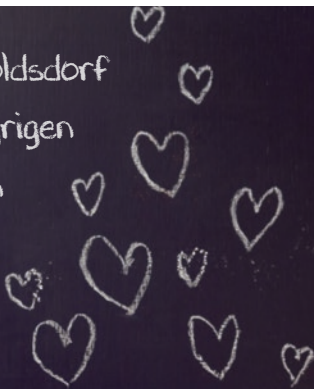 oldsdorf
rigen